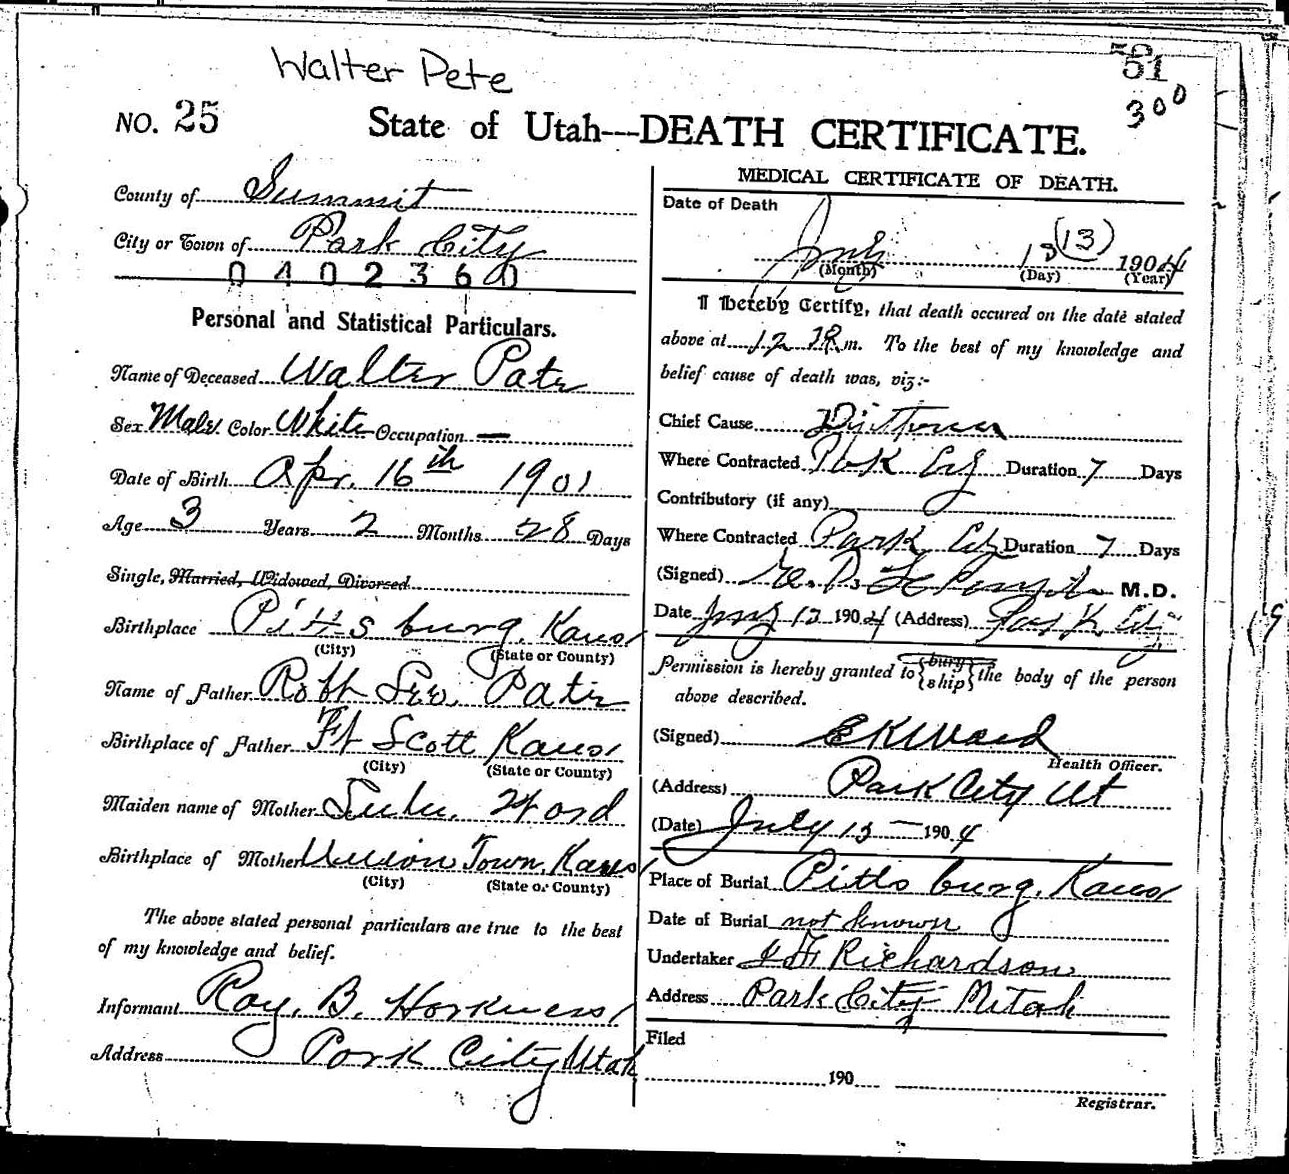 Walter Pete
51
300
NO. 25
State of Utah---DEATH CERTIFICATE.
County of Summit
City or Town of Park City
0402360
Personal and Statistical Particulars.
Name of Deceased Walter Pate
Sex Male Color White Occupation —
Date of Birth Apr. 16th 1901
Age 3 Years 2 Months 28 Days
Single, Married, Widowed, Divorsed
Birthplace Pittsburg, Kans
(City) (State or County)
Name of Father Robt Pate
Birthplace of Father Ft Scott Kans
(City) (State or County)
Maiden name of Mother Ford
Birthplace of Mother Union Town, Kans
(City) (State or County)
The above stated personal particulars are true to the best
of my knowledge and belief.
Informant Roy. B.
Address Park City Utah
MEDICAL CERTIFICATE OF DEATH.
Date of Death
July 13 (13) 1904
(Month) (Day) (Year)
I hereby Certify, that death occured on the date stated
above at 12 m. To the best of my knowledge and
belief cause of death was, viz:-
Chief Cause
Where Contracted Park City Duration 7 Days
Contributory (if any)
Where Contracted Park City Duration 7 Days
(Signed) M.D.
Date July 13 1904 (Address) Park City
Permission is hereby granted to {bury ship} the body of the person
above described.
(Signed) E K Ward
Health Officer.
(Address) Park City Ut
(Date) July 13 — 1904
Place of Burial Pittsburg, Kans
Date of Burial not known
Undertaker Richardson
Address Park City Utah
Filed
190
Registrar.